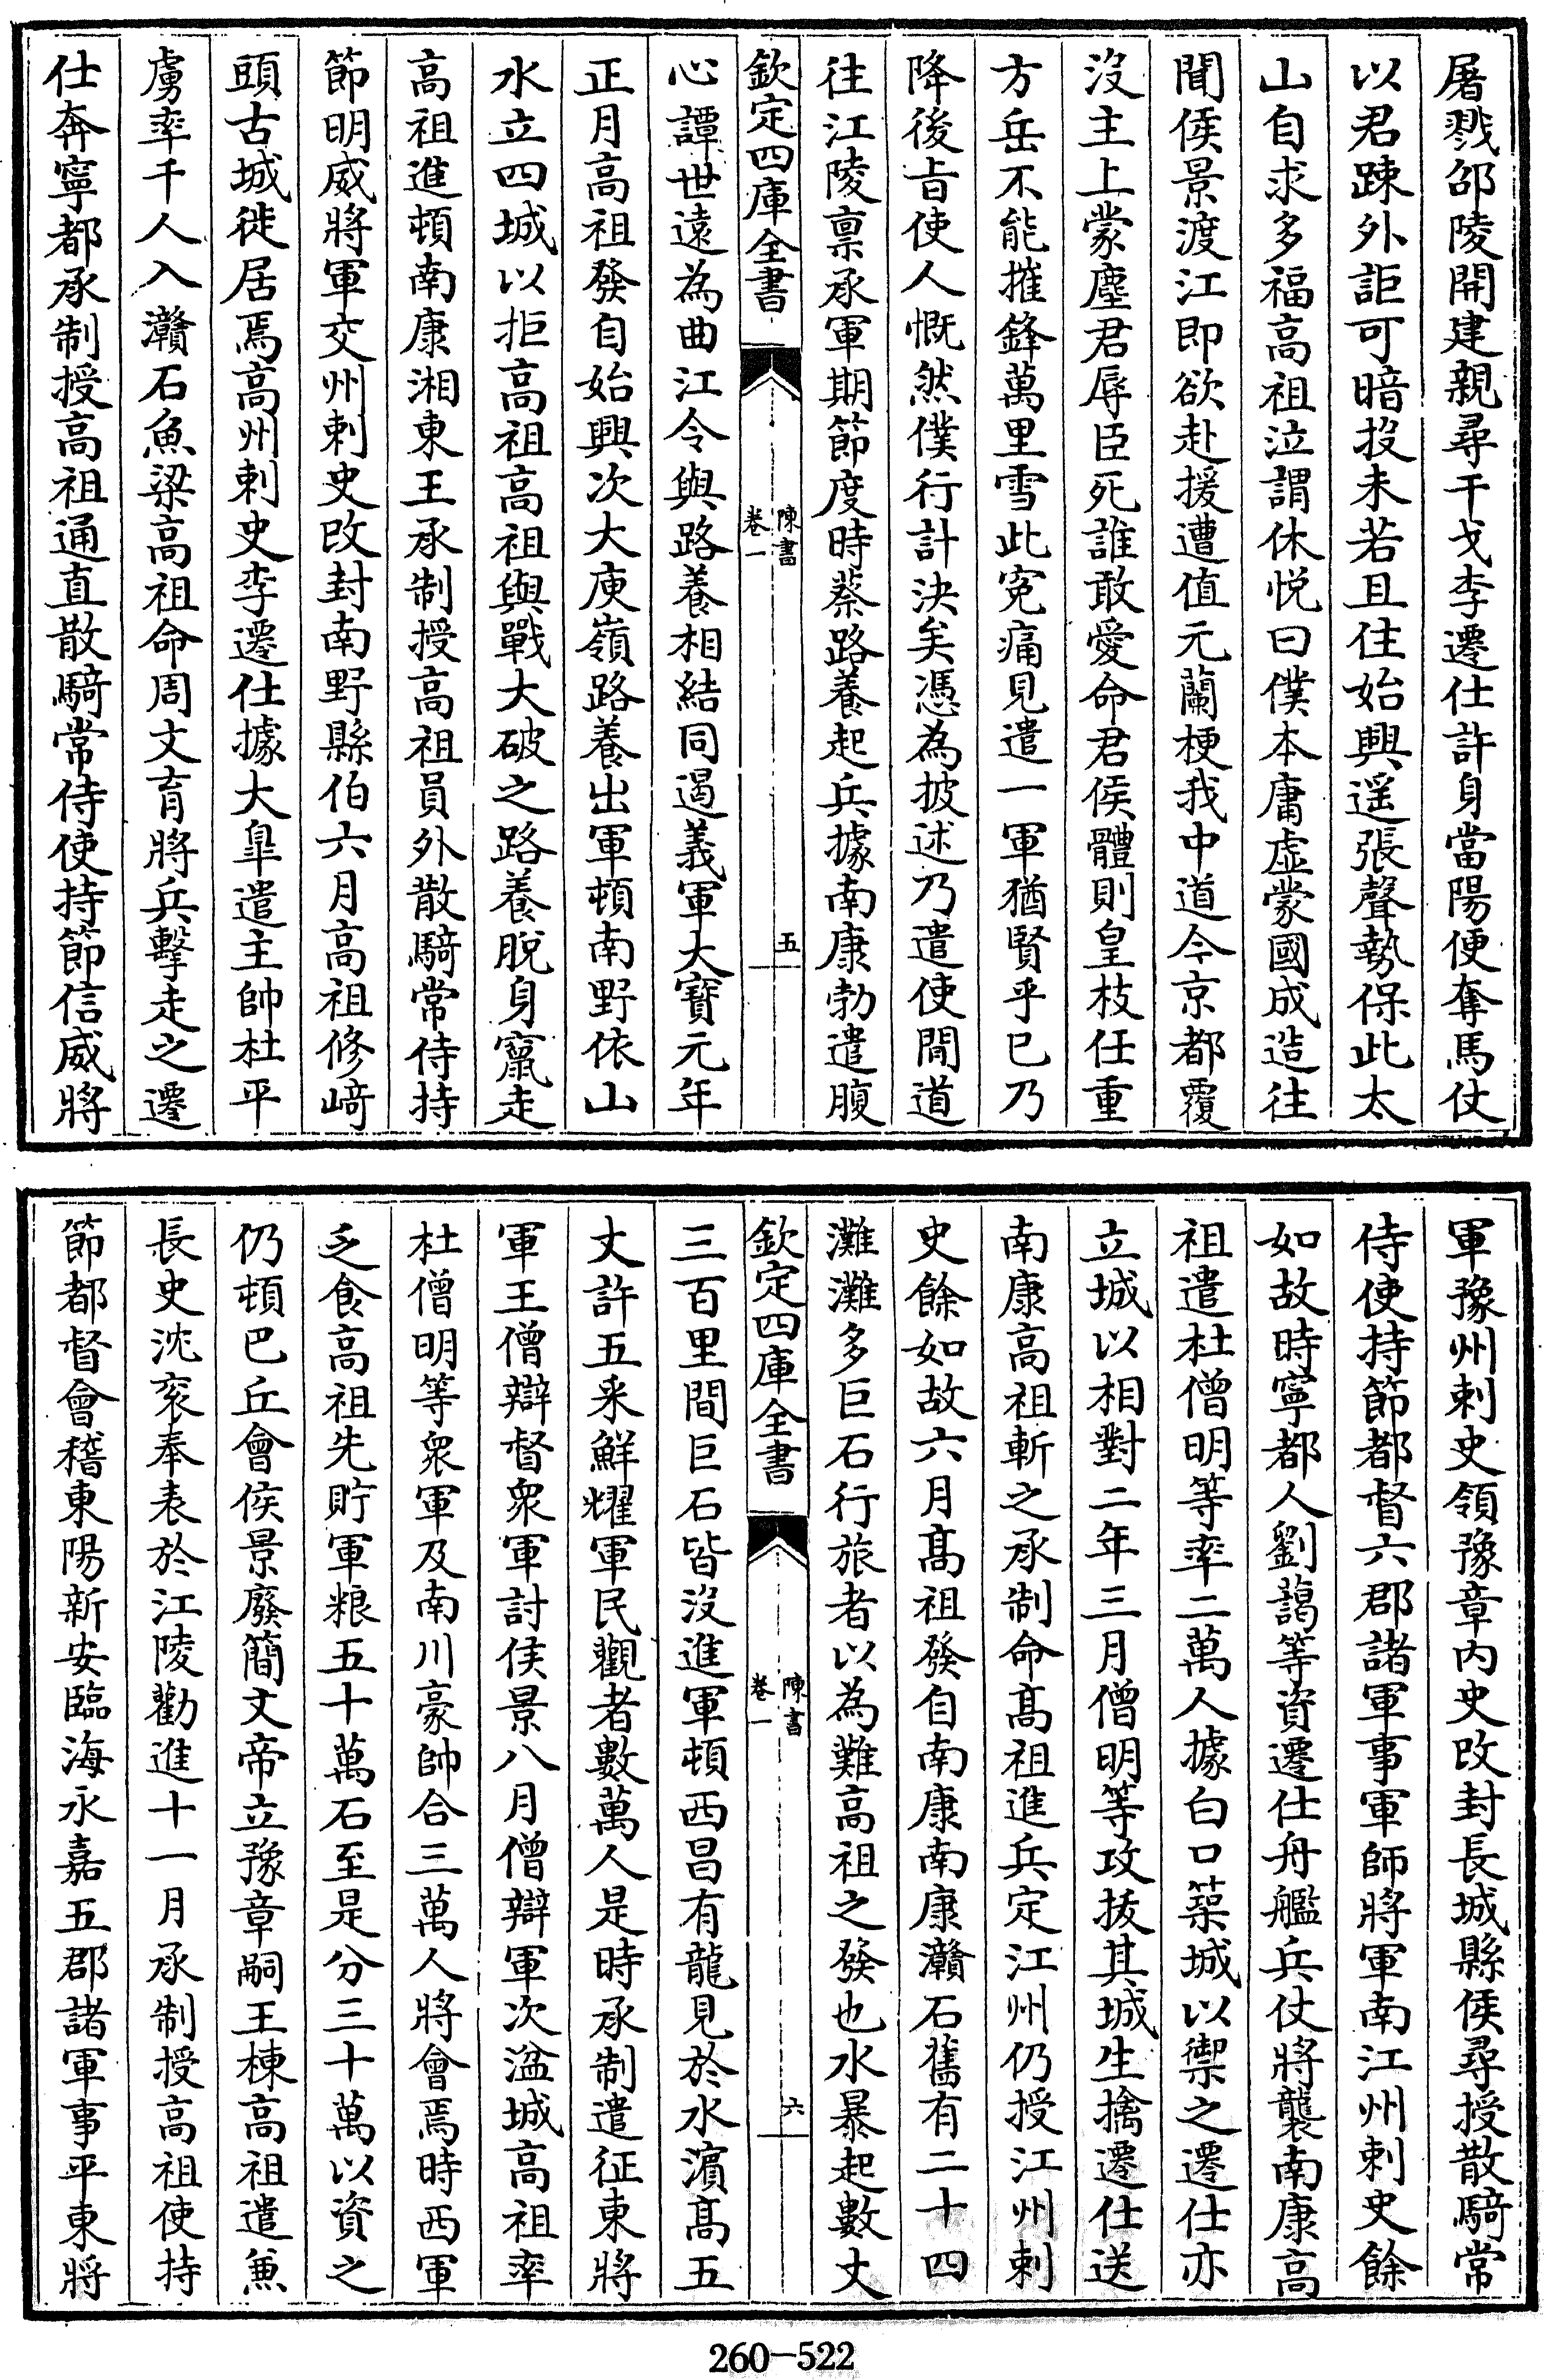 屠戮邵陵開建親尋干戈李遷仕許身當陽便奪馬仗
以君踈外詎可暗投未若且住始興遥張聲勢保此太
山自求多福高祖泣謂休悦曰僕本庸虚蒙國成造往
聞侯景渡江即欲赴援遭值元蘭梗我中道今京都覆
沒主上蒙塵君辱臣死誰敢愛命君侯體則皇枝任重
方岳不能摧鋒萬里雪此寃痛見遣一軍猶賢乎已乃
降後㫖使人慨然僕行計決矣憑為披述乃遣使間道
往江陵禀承軍期節度時蔡路養起兵據南康勃遣腹
欽定四庫全書
陳書
卷一
五
心譚世遠為曲江令與路養相結同遏義軍大寳元年
正月高祖發自始興次大庾嶺路養出軍頓南野依山
水立四城以拒高祖高祖與戰大破之路養脱身竄走
高祖進頓南康湘東王承制授高祖員外散騎常侍持
節明威將軍交州刺史改封南野縣伯六月高祖修﨑
頭古城徙居焉高州刺史李遷仕據大臯遣主帥杜平
虜率千人入灨石魚梁高祖命周文育將兵擊走之遷
仕奔寧都承制授高祖通直散騎常侍使持節信威將
軍豫州刺史領豫章内史改封長城縣侯尋授散騎常
侍使持節都督六郡諸軍事軍師將軍南江州刺史餘
如故時寧都人劉藹等資遷仕舟艦兵仗將襲南康高
祖遣杜僧明等率二萬人據白口築城以禦之遷仕亦
立城以相對二年三月僧明等攻拔其城生擒遷仕送
南康高祖斬之承制命髙祖進兵定江州仍授江州刺
史餘如故六月髙祖發自南康南康灨石舊有二十四
灘灘多巨石行旅者以為難高祖之發也水暴起數丈
欽定四庫全書
陳書
卷一
六
三百里間巨石皆沒進軍頓西昌有龍見於水濵髙五
丈許五采鮮耀軍民觀者數萬人是時承制遣征東將
軍王僧辯督衆軍討侯景八月僧辯軍次湓城高祖率
杜僧明等衆軍及南川豪帥合三萬人將會焉時西軍
乏食高祖先貯軍粮五十萬石至是分三十萬以資之
仍頓巴丘會侯景廢簡文帝立豫章嗣王棟高祖遣兼
長史沈衮奉表於江陵勸進十一月承制授高祖使持
節都督會稽東陽新安臨海永嘉五郡諸軍事平東將
260-522